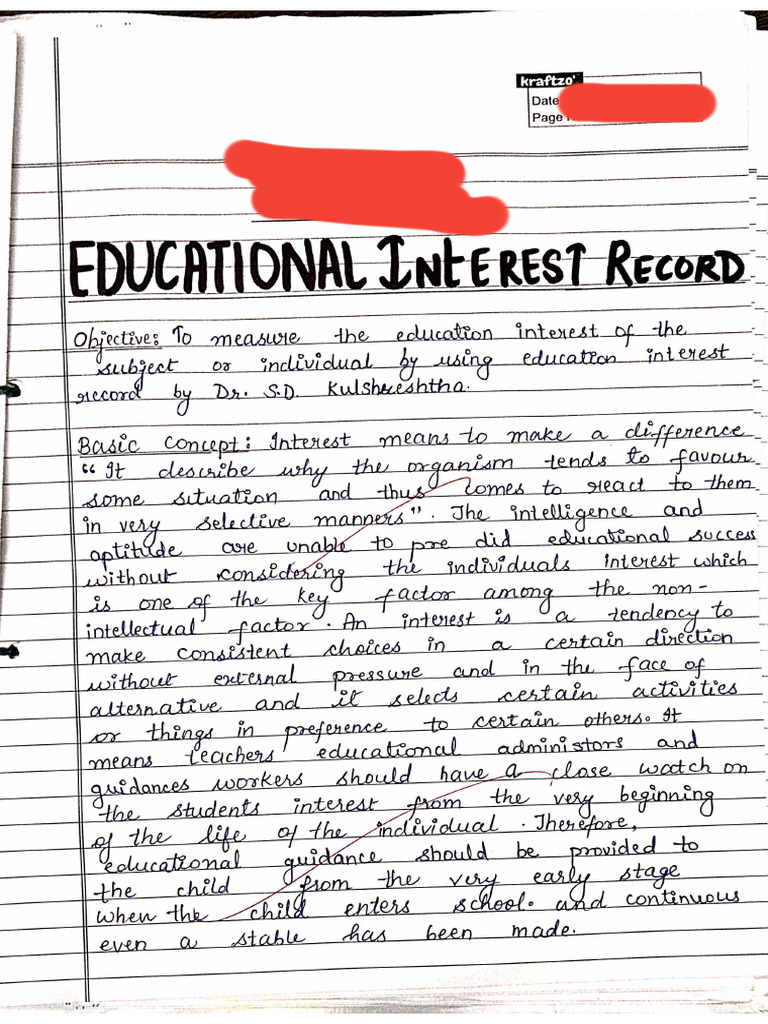 kraftzo
Date
Page
EDUCATIONAL INTEREST RECORD
Objective: To measure the education interest of the
subject or individual by using education interest
record by Dr. S.D. Kulshreshtha.
Basic Concept: Interest means to make a difference
"It describe why the organism tends to favour
some situation and thus comes to react to them
in very selective manners". The intelligence and
aptitude are unable to pre did educational success
without considering the individuals interest which
is one of the key factor among the non-
intellectual factor. An interest is a tendency to
make consistent choices in a certain direction
without external pressure and in the face of
alternative and it selects certain activities
or things in preference to certain others. It
means teachers educational administors and
guidances workers should have a close watch on
the students interest from the very beginning
of the life of the individual. Therefore,
educational guidance should be provided to
the child from the very early stage
when the child enters school. and continuous
even a stable has been made.